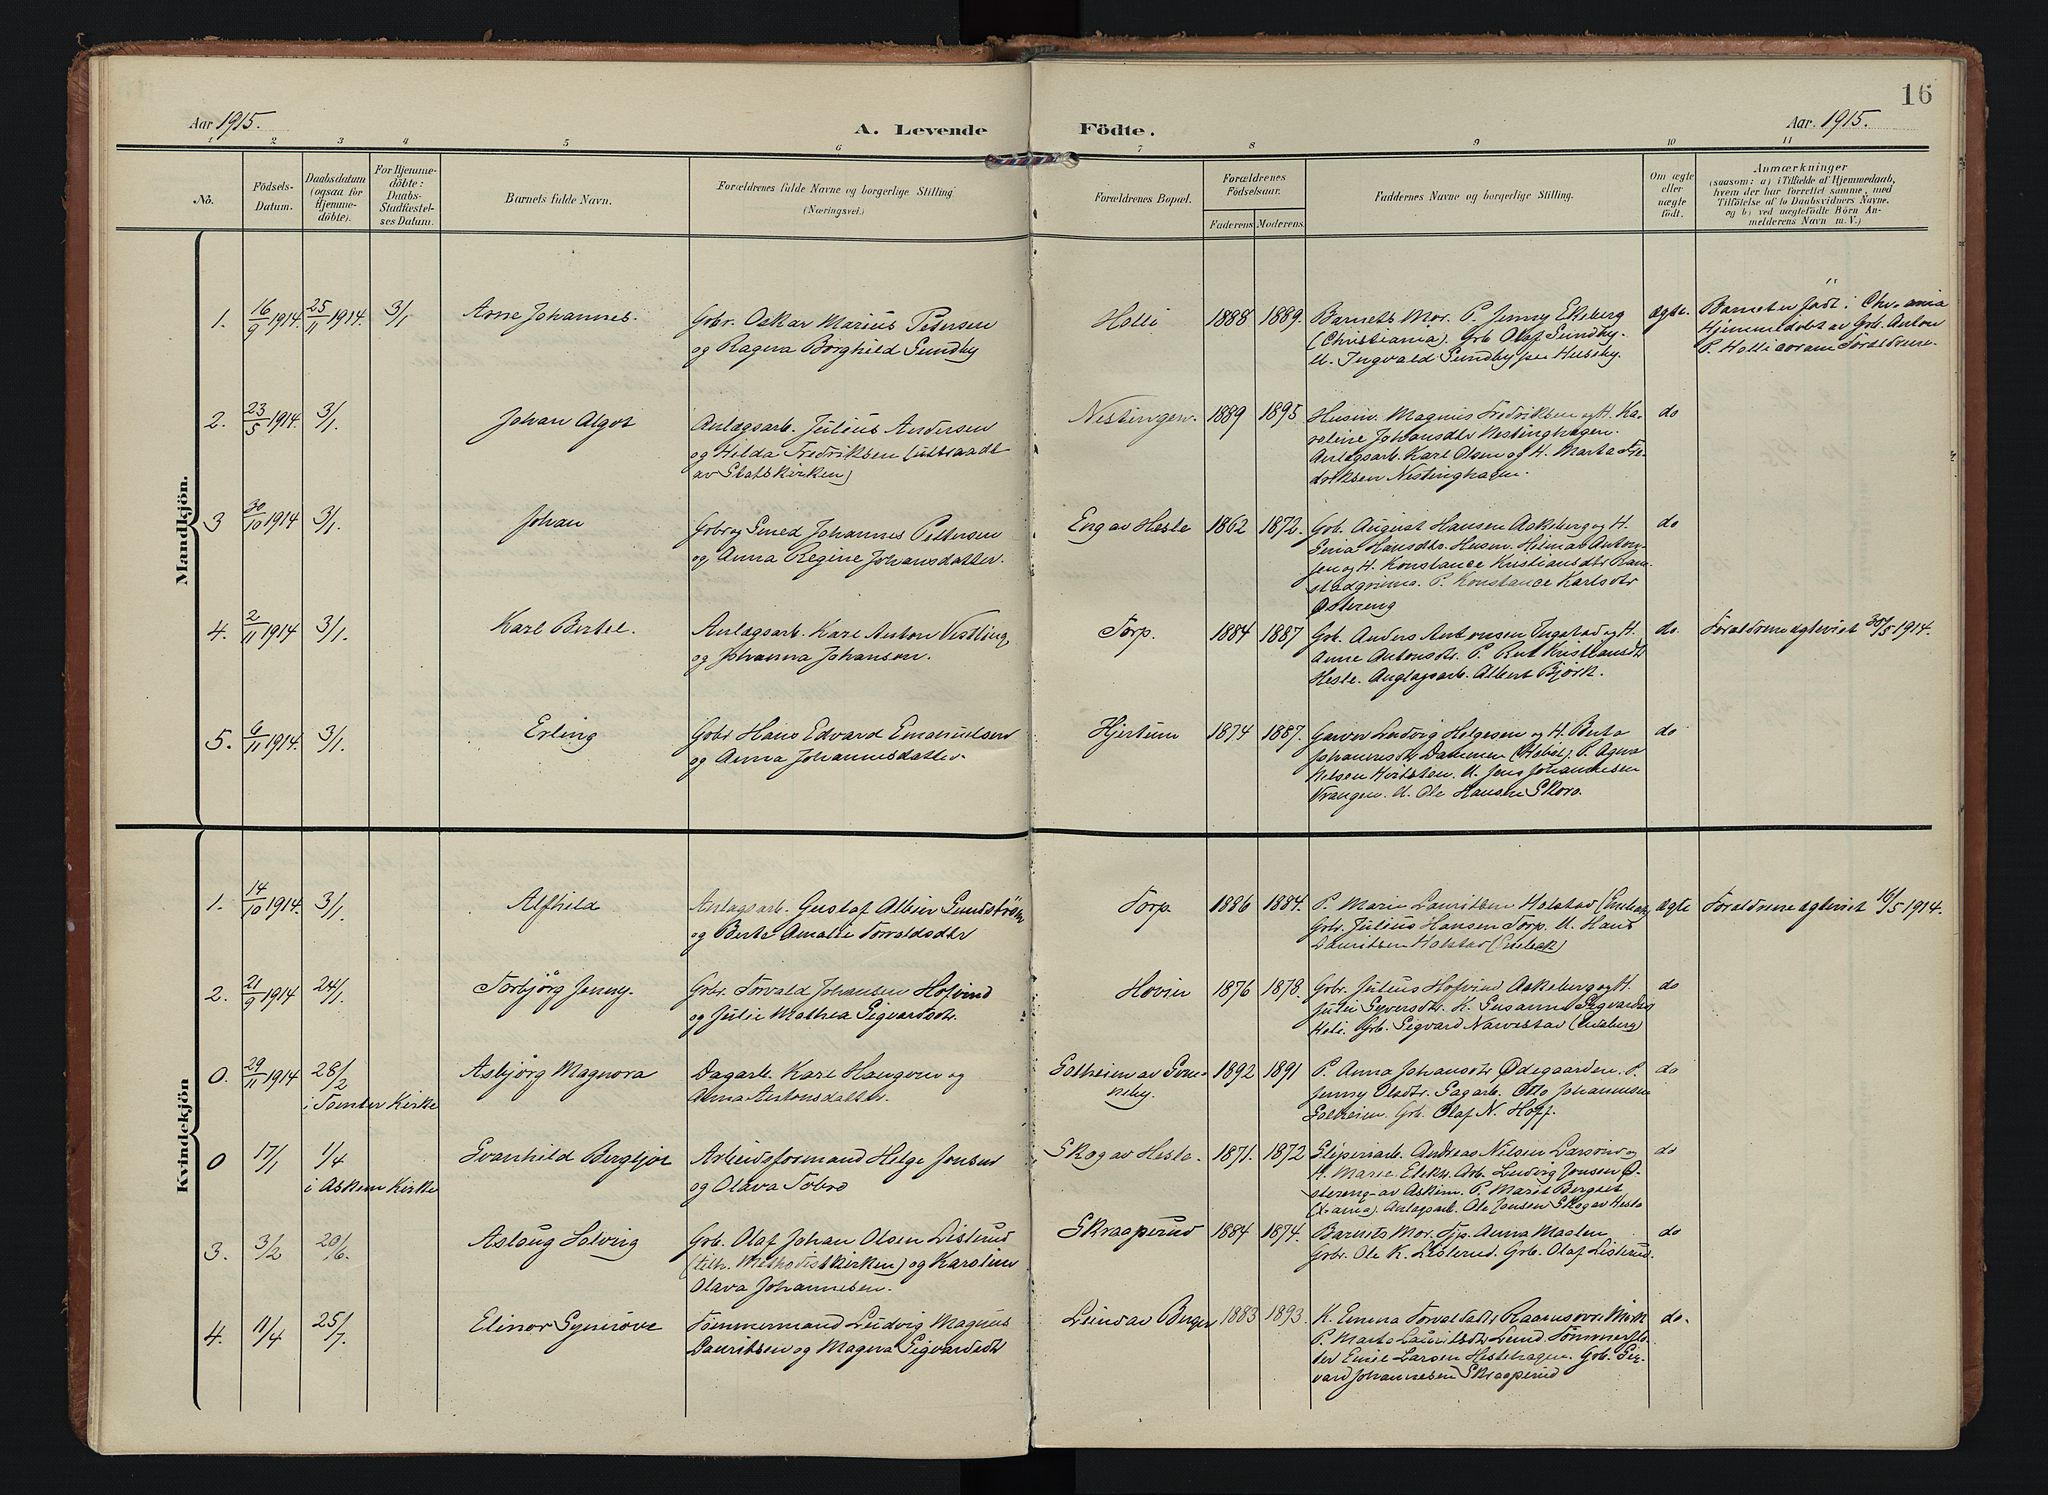 16
Aar 1915.
A. Levende
Födte.
Aar. 1915.
1 2 3 4 5 6 7 8 9 10 11
No.
Födsels-
Datum.
Daabsdatum
(ogsaa for
Hjemme-
döbte).
For Hjemme-
döbte:
Daabs-
Stadfæstel-
ses Datum.
Barnets fulde Navn.
Forældrenes fulde Navne og borgerlige Stilling
(Næringsvei.)
Forældrenes Bopæl.
Forældrenes
Födselsaar.
Faderens Moderens.
Faddernes Navne og borgerlige Stilling.
Om ægte
eller
uægte
födt.
Anmærkninger
(saasom: a) i Tilfælde af Hjemmedaab,
hvem der har forrettet samme, med
Tilföielse af to Daabsvidners Navne,
og b) ved uægtefödte Börn An-
melderens Navn m. V.)
Mandkjön.
1. 16/9 1914. 25/11 1914. 3/1 Arne Johannes.
Gbr. Oskar Marius Petersen
og Ragna Borghild Sundby
Holli 1888 1889.
Barnets Mor. P. Jenny Ekeberg
(Christiania). Grb Olaf Sundby.
U. Ingvald Sundby Huseby.
ægte.
Barnet er født i Chr.ania
Hjemmedøbt av Grb. Anton
P. Holli coram Foraldrene.
2. 23/5 1914. 3/1. Johan Algot
Anlægsarb. Julius Andersen
og Hilda Fredriksen (uttraadt
av Statskirken)
Nestingen. 1889 1895
Husm. Magnus Fredriksen og H. Ka-
roline Johansdtr Nestinghagen.
Anlægsarb. Karl Olsen og H. Marta Fre-
driksen Nestinghagen.
do
3 30/10 1914 3/1. Johan
Gbr og Smed Johannes Pettersen
og Anna Regine Johansdatter.
Eng av Hesle 1862 1872.
Grb. August Hansen Askeberg og H.
Hansdtr. Husm. Hilmar Anton-
sen og H. Konstance Kristiansdtr Ram-
stadgrinna. P. Konstance Karlsdtr
Østereng
do
4. 2/11 1914 3/1. Karl Bertel.
Anlægsarb. Karl Anton Vestling
og Johanna Johanson.
Torp. 1884 1887
Grb. Anders Antonsen Ingstad og H.
Anne Antonsdtr. P. Rut Kristiansdtr
Hesle. Anglægsarb. Albert Björk.
do.
Foraldrene ægteviet 30/5 1914.
5. 6/11 1914. 3/1. Erling
Gbr Hans Edvard Emanuelsen
og Anna Johannesdatter.
Hjertum 1874 1887.
Garver Ludvig Helgesen og H. Berta
Johannesdtr Dammen (Hobøl). P. Agna
Nilsen Hvitsten. U. Jens Johannesen
Vrangen. U. Ole Hansen Skoro.
do
Kvindekjön
1. 14/10 1914. 3/1. Alfhild
Anlægsarb. Gustaf Albin Sundström
og Berte Amalie Torvaldsdtr
Torp. 1886 1884.
P. Marie Lauritsen Holstad (Enebak)
Grb. Julius Hansen Torp. U. Hans
Lauritsen Holstad (Enebak)
ægte
Foraldrene ægteviet 16/5 1914.
2. 21/9 1914 24/1. Torbjørg Jenny.
Gbr. Torvald Johansen Hofvind
og Julie Mathea Sigvardsdtr.
Hovin 1876 1878.
Gbr. Julius Hofvind Askeberg og H.
Julie Syversdtr. K. Susanne Sigvardsdtr
Heli. Grb. Sigvard Narvestad (Eidsberg)
do
0. 29/11 1914 28/2 Asbjörg Magnora
i Tomter Kirke
Dagarb. Karl Haugom og
Anna Antonsdatter.
Solheim av Son-
neby. 1892 1891
P. Anna Johansdtr Ødegaarden. P.
Jenny Olsdtr. Sagarb. Otto Johannesen
Solheim. Grb. Olaf N. Hoff.
do
0 17/1 1/4 Svanhild Bergljot
i Askim Kirke
Arbeidsformand Helge Jonsen
og Olava Tobro
Skog av Hesle. 1871. 1872
Sliperiarb. Andreas Nilsen Larsond og
H. Marie Arb. Ludvig Jonsen Ø-
stereng av Askim. P. Marit Bergset
(X.ania). Anlægsarb. Ole Jonsen Skog av Hesle
do
3. 3/2 20/6. Aslaug Solveig
Grb. Olaf Johan Olsen Listrud
(tilh. Methodistkirken) og Karoline
Olava Johannesen.
Skraaperud 1884 1874.
Barnets Mor. Tjp. Anna Moslen
Grbr. Ole K. Listerud. Grb. Olaf Listerud.
do
4. 11/4 25/7. Elinor Synnöve
Tømmermand Ludvig Magnus
Lauritsen og Magna Sigvardsdtr
Lund av Berger 1883 1893.
K. Emma Torvaldsdtr Raanaasvr. Mork
P. Marta Lauritsdtr Lund. Tømmerflø-
ter Emil Larsen Hestehagen. Grb. Sig-
vard Johannesen Skraaperud
do.